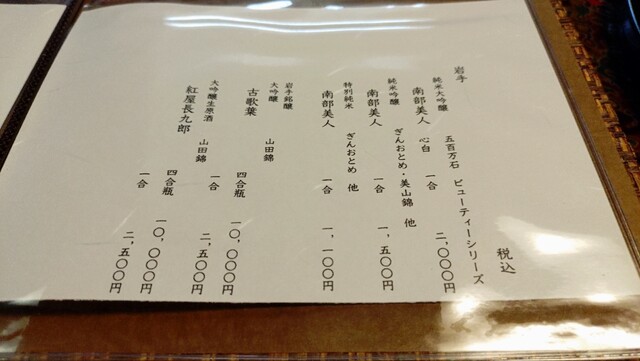 税込
岩手 ビューティーシリーズ
純米大吟醸 五百万石
南部美人 心白 一合 二,〇〇〇円
純米吟醸 ぎんおとめ・美山錦 他
南部美人 一合 一,五〇〇円
特別純米 ぎんおとめ 他
南部美人 一合 一,一〇〇円
岩手銘醸
大吟醸 山田錦
古歌葉 四合瓶 一〇,〇〇〇円
一合 二,五〇〇円
大吟醸生原酒 山田錦
紅屋長九郎 四合瓶 一〇,〇〇〇円
一合 二,五〇〇円